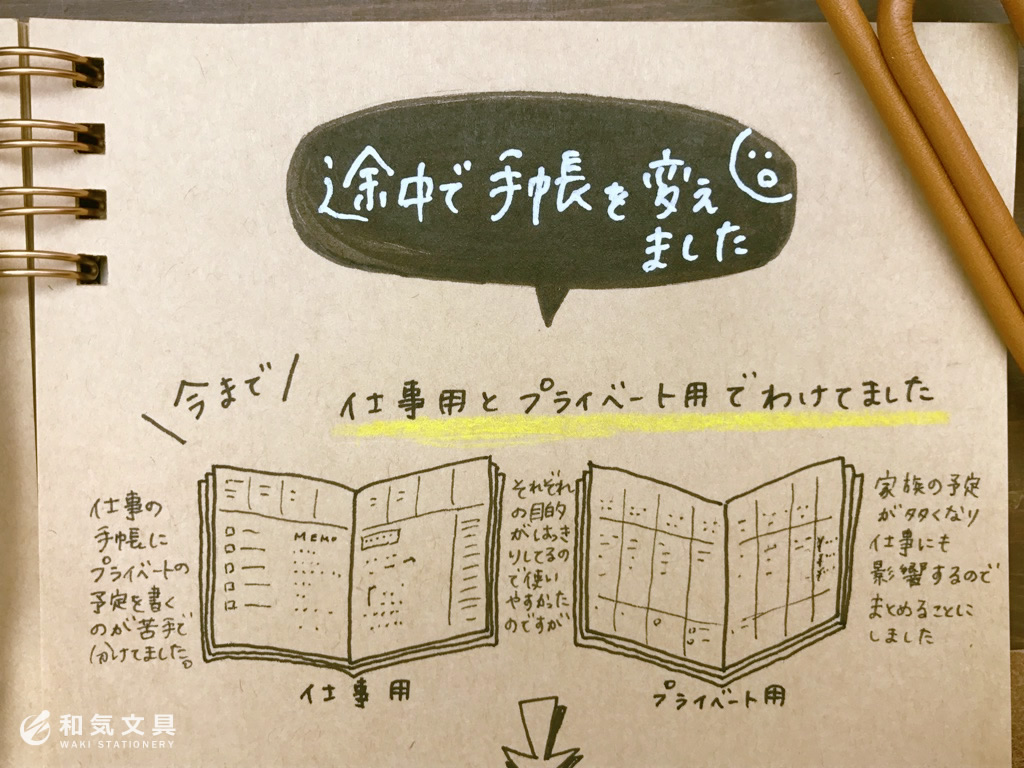 途中で手帳を変え
ました
今まで
仕事用とプライベート用でわけてました
仕事の
手帳に
プライベートの
予定を書く
のが苦手で
分けてました。
MEMO
それぞれ
の目的
がはっき
りしてるの
で使い
やすかった
のですが
家族の予定
が多くなり
仕事にも
影響するので
まとめることに
しました
仕事用
プライベート用
和気文具
WAKI STATIONERY